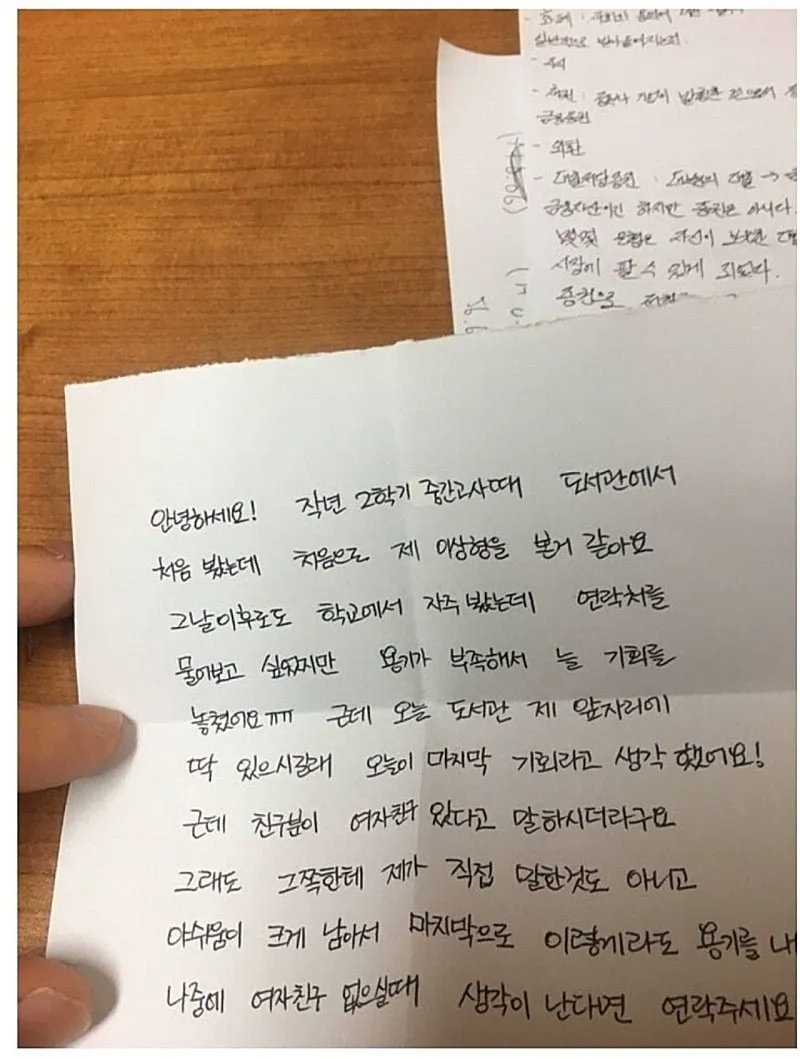 일반적으로 받아들여지는것.
- 주식
금융증권
- 외환
금융자산이긴 하지만 증권은 아니다.
몇몇 은행은 자신이 보유한
시장에 팔 수 있게 되었다.
증권으로
안녕하세요! 작년 2학기 중간고사때 도서관에서
처음 봤는데 처음으로 제 이상형을 본거 같아요
그날이후로도 학교에서 자주 봤는데 연락처를
물어보고 싶었지만 용기가 부족해서 늘 기회를
놓쳤어요ㅠㅠ 근데 오늘 도서관 제 앞자리에
딱 있으시길래 오늘이 마지막 기회라고 생각 했어요!
근데 친구분이 여자친구 있다고 말하시더라구요
그래도 그쪽한테 제가 직접 말한것도 아니고
아쉬움이 크게 남아서 마지막으로 이렇게라도 용기를 내
나중에 여자친구 없으실때 생각이 난다면 연락주세요